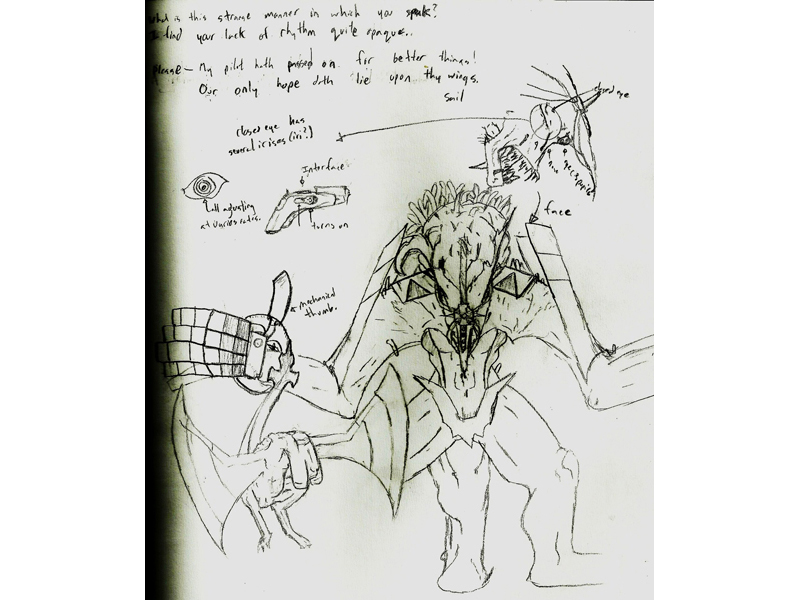 What is this strange manner in which you speak?
I find your lack of rhythm quite opaque..
Please - My pilot hath passed on for better things!
Our only hope doth lie upon thy wings.
Soil
closed eye
closed eye has
several irises (iri?)
Interface
all adjusting
at various rates.
turns on
face
mechanical
thumb.